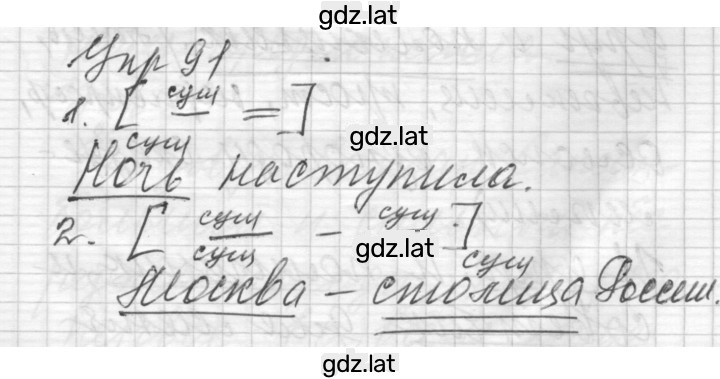 gdz.lat
Упр 91
1. [ сущ = ]
gdz.lat
сущ
Ночь наступила.
2. [ сущ - сущ. ]
gdz.lat
сущ сущ
Москва - столица России.
gdz.lat